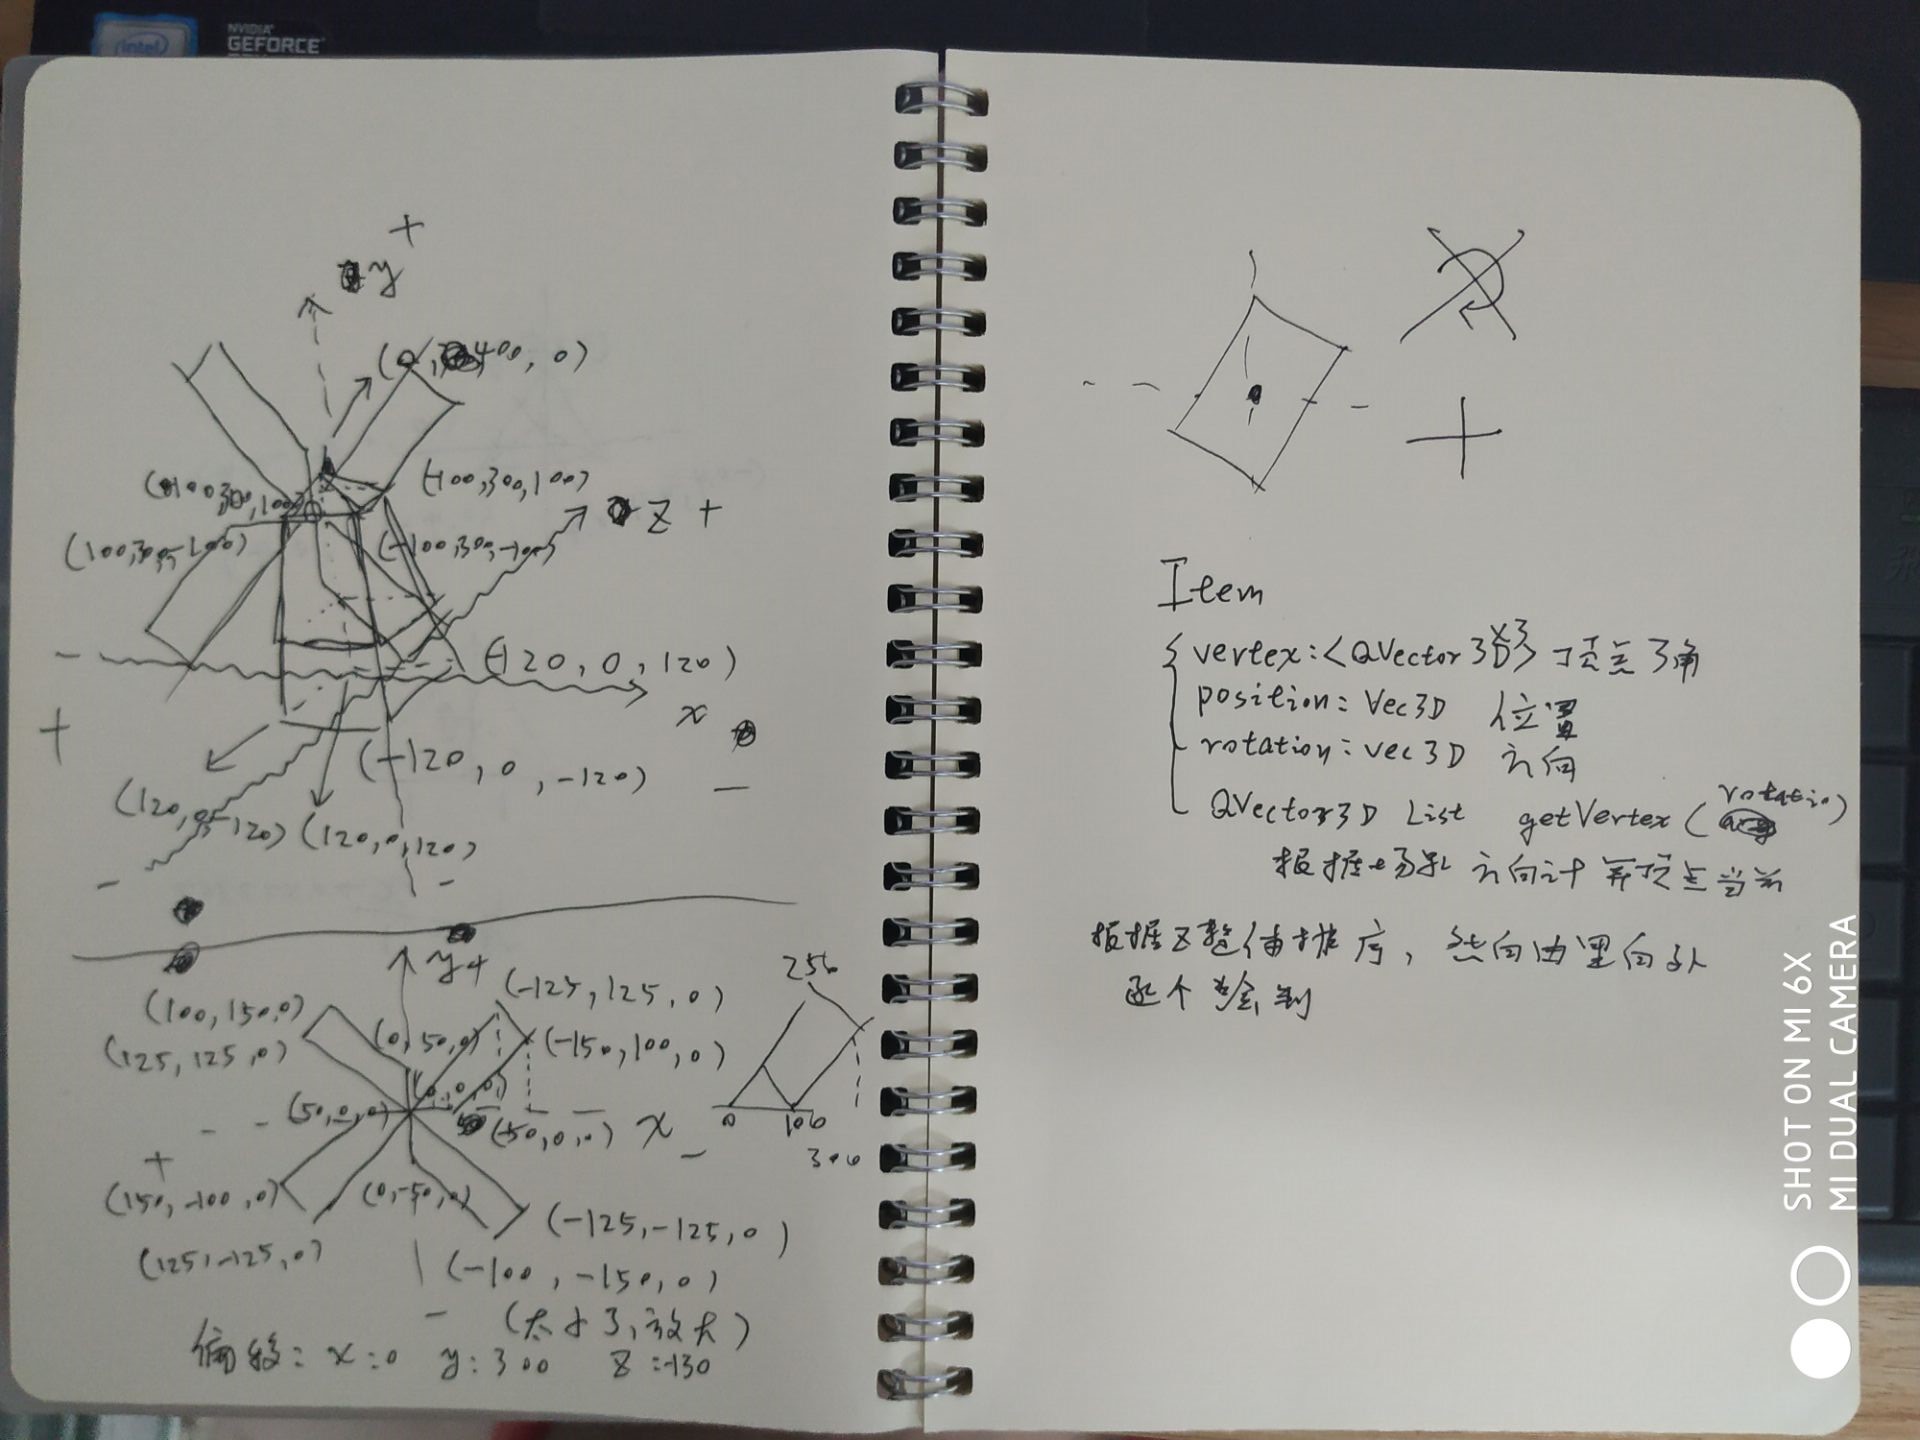 intel
NVIDIA
GEFORCE
+
y
(0, 400, 0)
(-100,300,100)
z +
(100,300,-100)
(-100,300,-100)
-
(-120, 0, 120)
x
+
(-120, 0, -120)
-
(120,0,-120)
(120,0,120)
-
-
y+
(-125, 125, 0)
256
(100, 150,0)
(0, 50,0)
(-150,100,0)
(125, 125,0)
(0,0,0)
(50,0,0)
(-50,0,0)
x
-
0
100
300
+
(150,-100,0)
(0,-50,0)
(-125,-125,0)
(125,-125,0)
(-100,-150,0)
-
(太小了,放大)
偏移: x:0 y:300 z:-130
Item
vertex:<QVector3D>x3 顶点3角
position: Vec3D 位置
rotation: vec3D 方向
QVector3D List getVertex(rotation)
根据 方向计算顶点当前
根据Z整体排序, 然后由里向外
逐个绘制
SHOT ON MI 6X
MI DUAL CAMERA